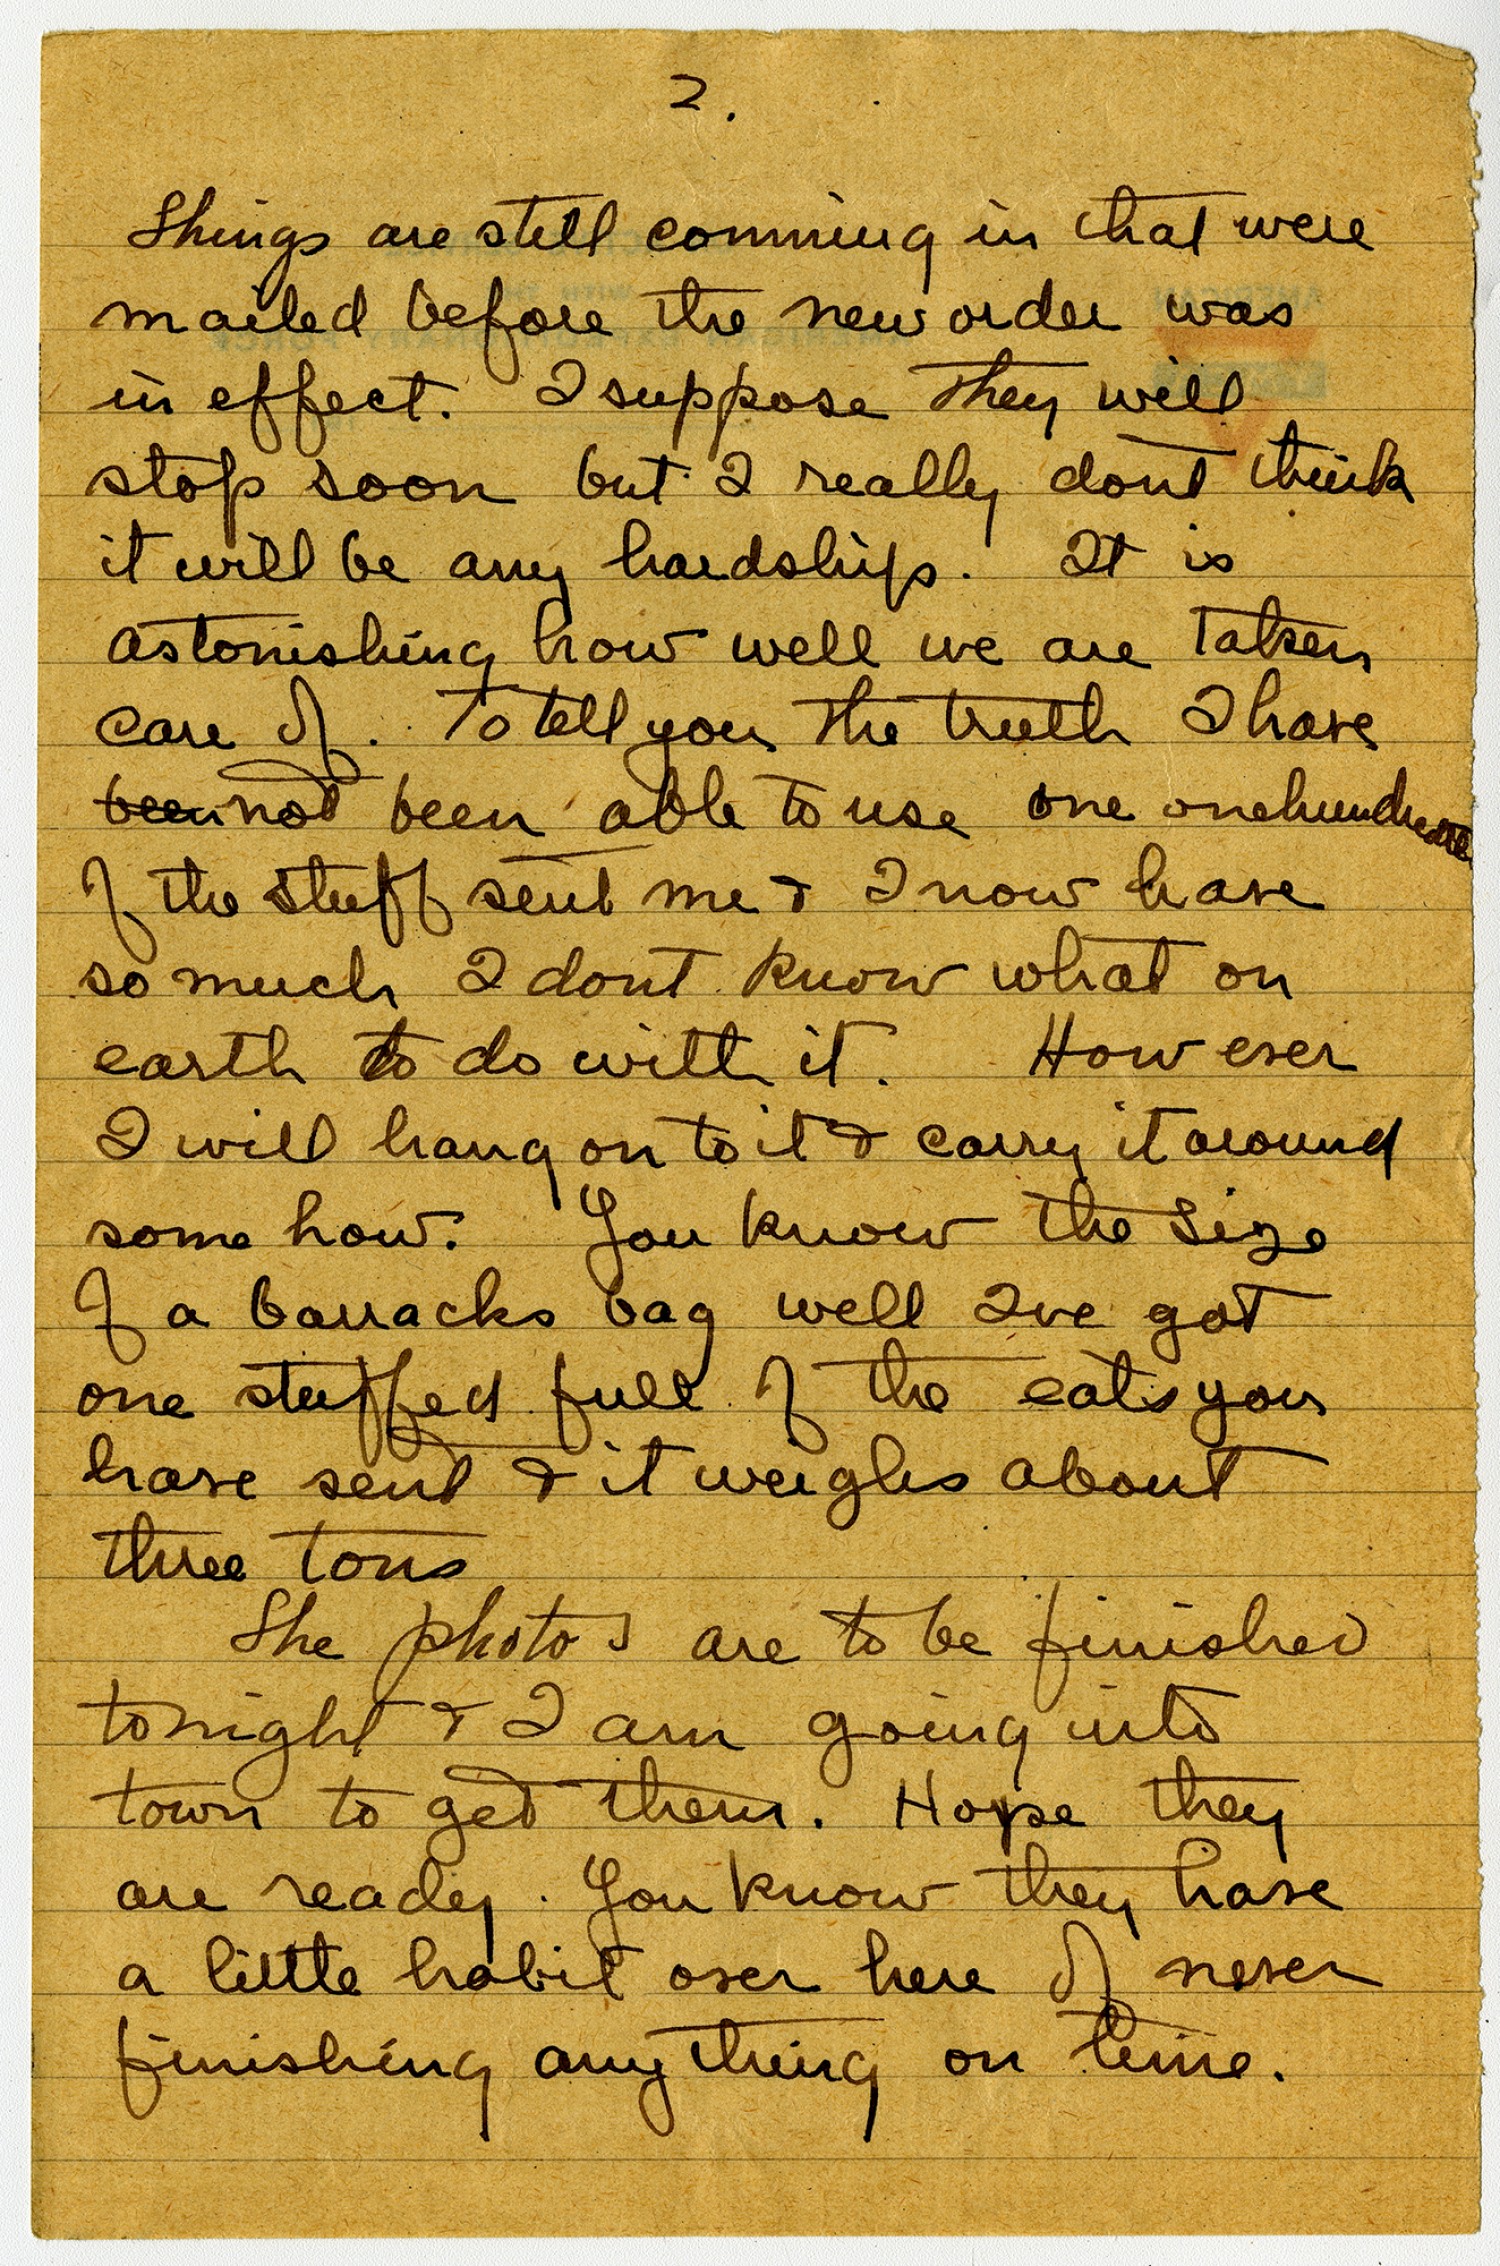 2.
Things are still comming in that were
mailed before the new order was
in effect. I suppose they will
stop soon but I really dont think
it will be any hardship. It is
astonishing how well we are taken
care of. To tell you the truth I have
been not been able to use one onehundredth
of the stuff sent me & I now have
so much I dont know what on
earth to do with it. However
I will hang on to it & carry it around
some how. You know the size
of a barracks bag well Ive got
one stuffed full of the eats you
have sent & it weighs about
three tons
The photos are to be finished
tonight & I am going into
town to get them. Hope they
are ready. You know they have
a little habit over here of never
finishing anything on time.